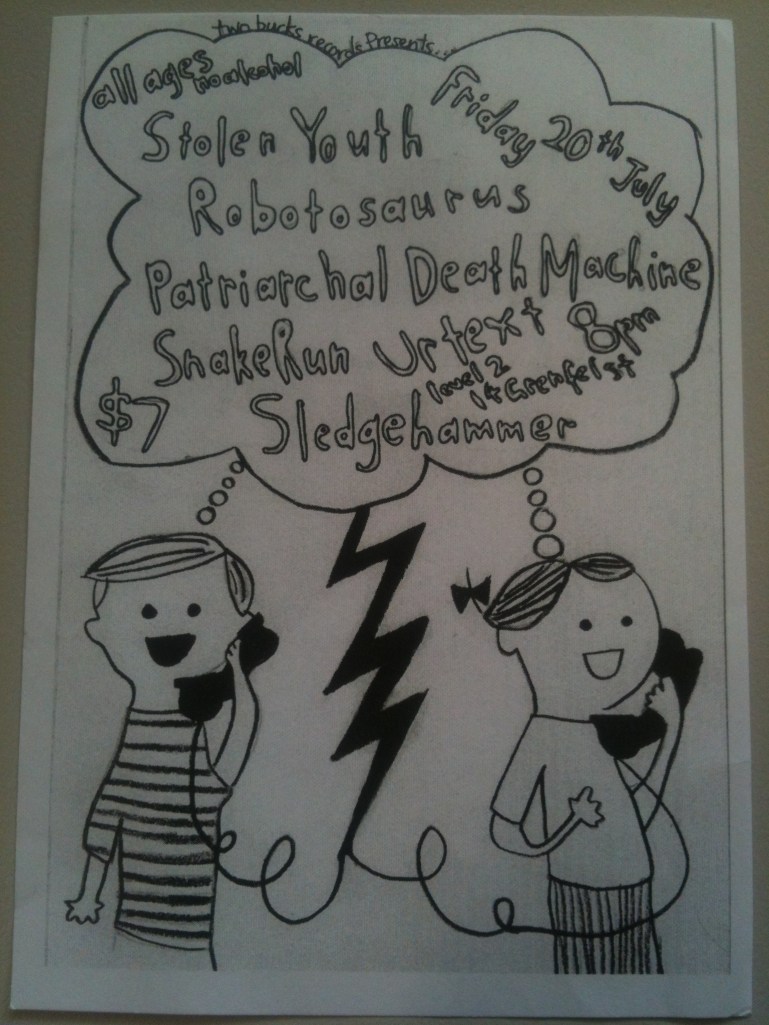 two bucks records Presents...
all ages
no alcohol
Friday 20th July
Stolen Youth
Robotosaurus
Patriarchal Death Machine
SnakeRun Urtext 8pm
level 2
14 Grenfel st
$7 Sledgehammer